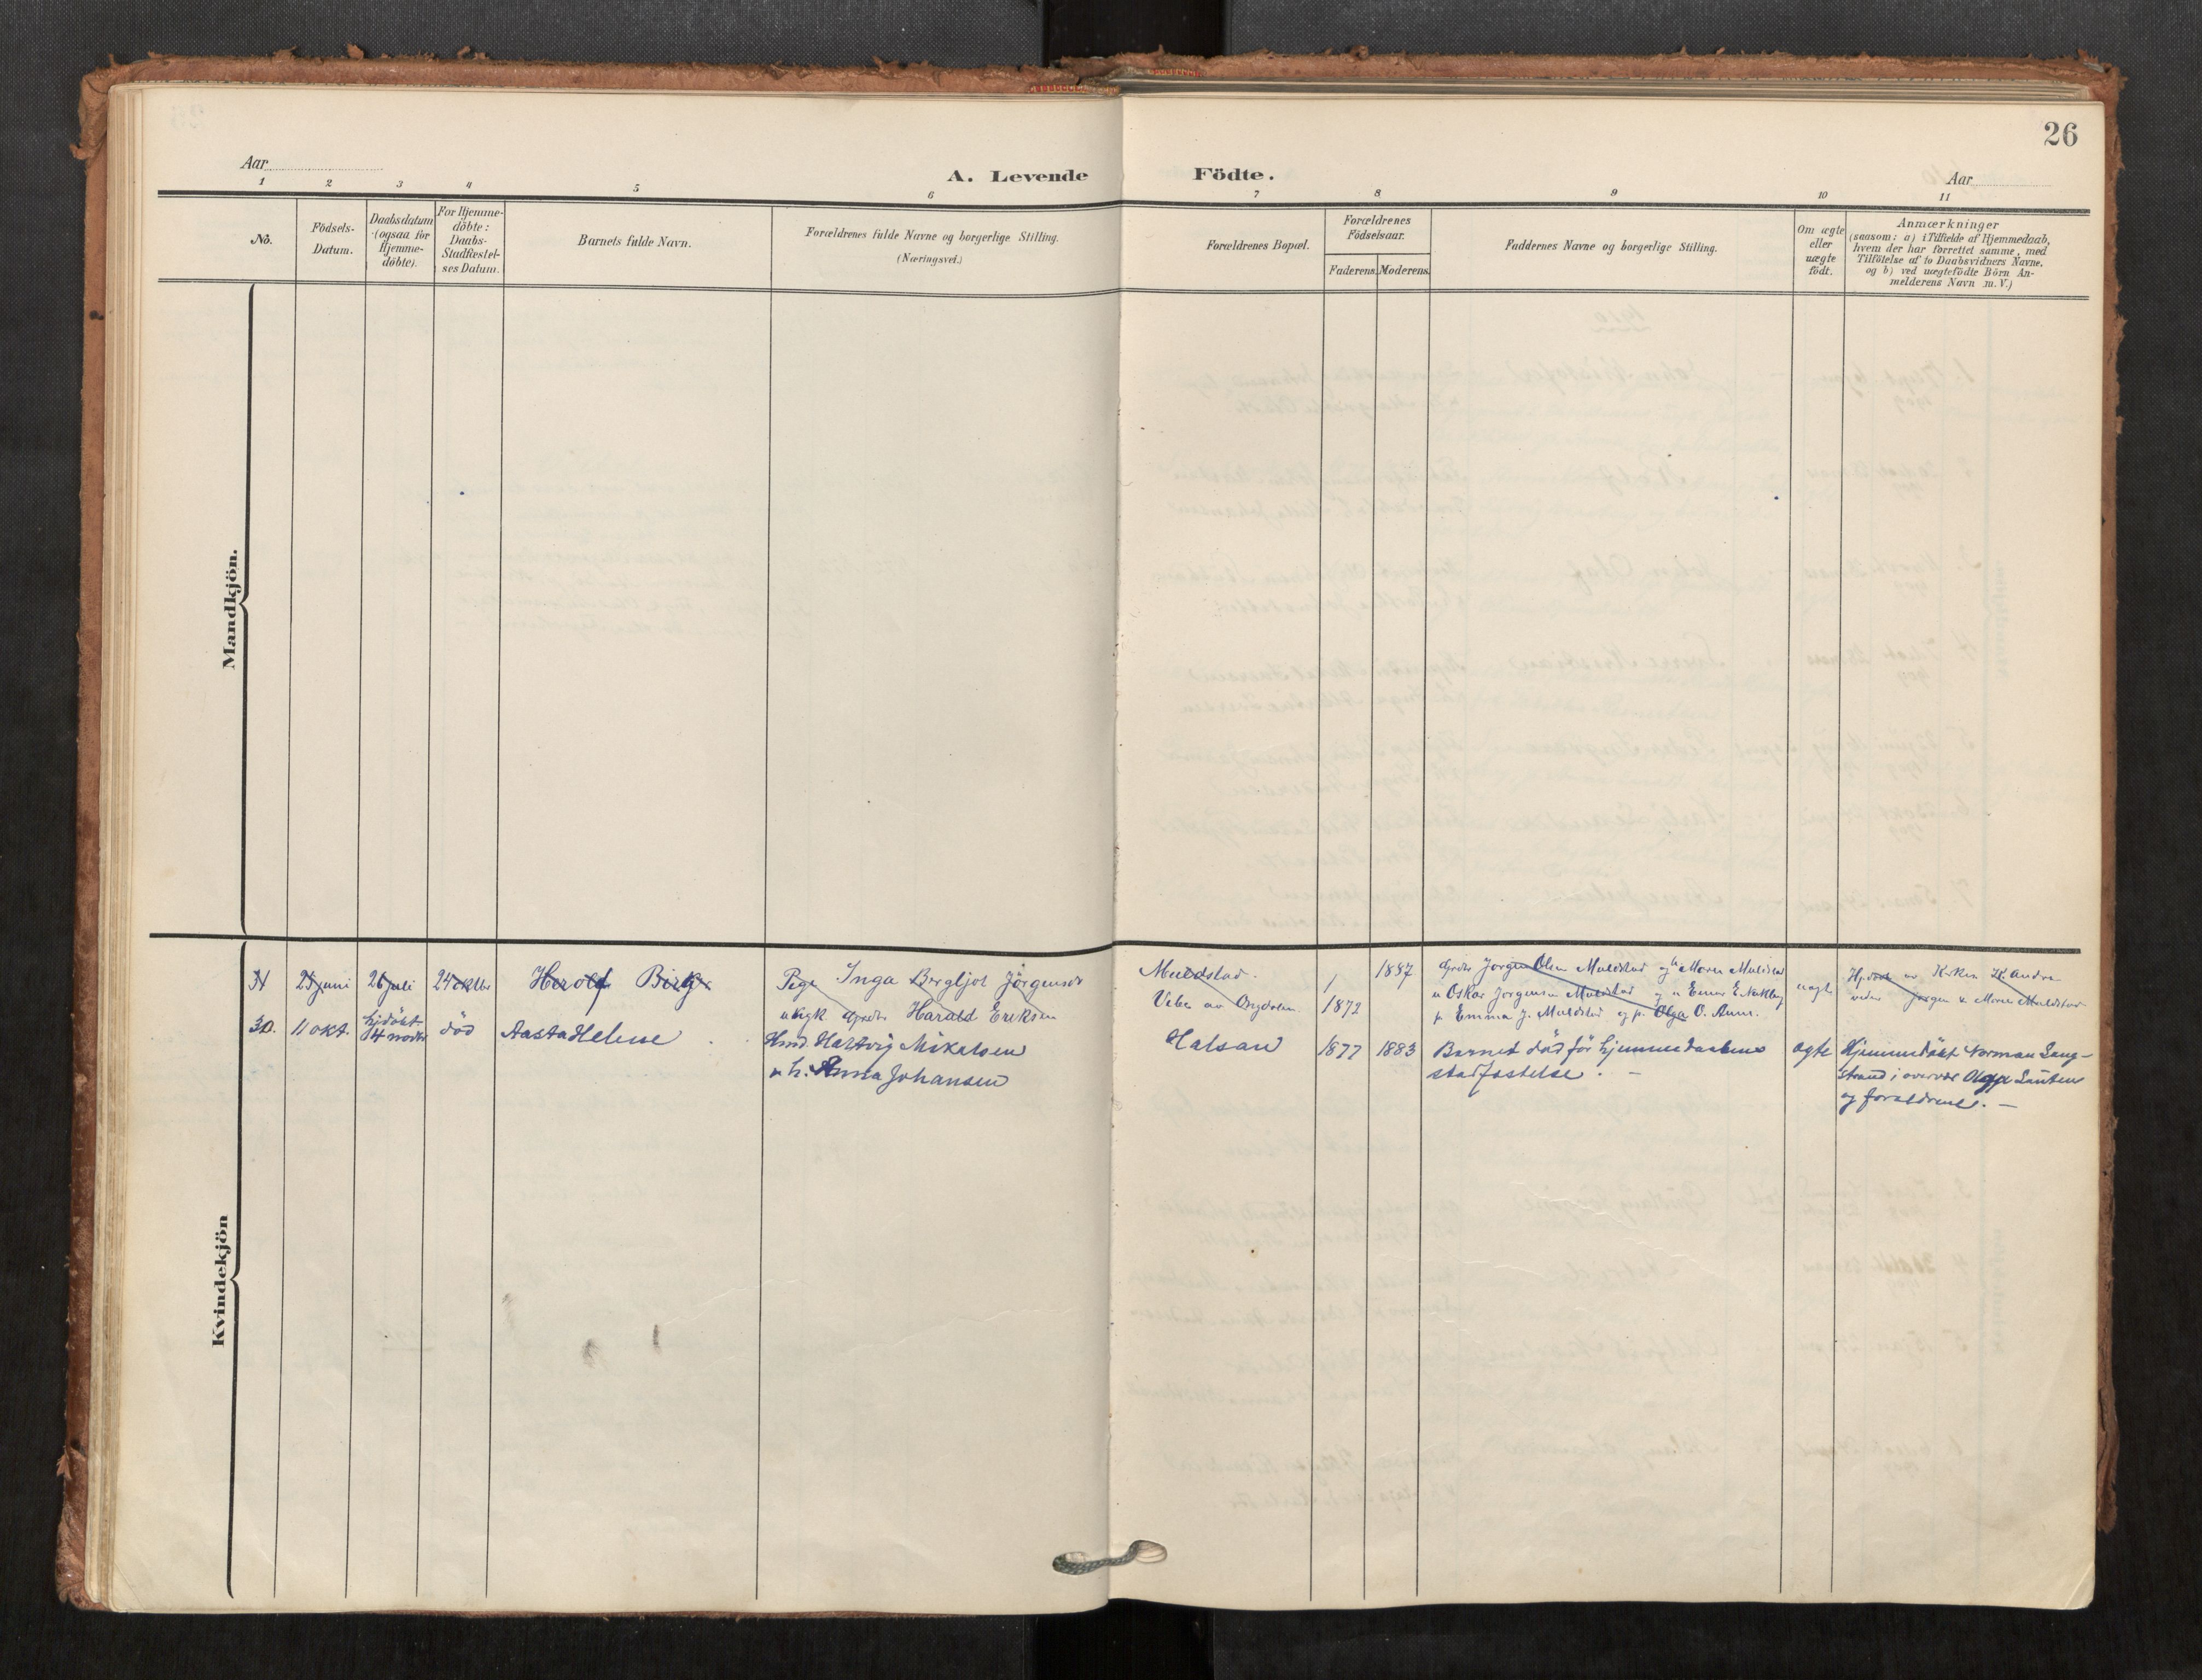 26
Aar
A. Levende Födte.
Aar
1 2 3 4 5 6 7 8 9 10 11
No.
Födsels-
Datum.
Daabsdatum
(ogsaa for
Hjemme-
döbte).
For Hjemme-
döbte:
Daabs-
Stadfæstel-
ses Datum.
Barnets fulde Navn.
Forældrenes fulde Navne og borgerlige Stilling.
(Næringsvei.)
Forældrenes Bopæl.
Forældrenes
Födselsaar.
Faderens. Moderens.
Faddernes Navne og borgerlige Stilling.
Om ægte
eller
uægte
födt.
Anmærkninger
(saasom: a) i Tilfælde af Hjemmedaab,
hvem der har forrettet samme, med
Tilföielse af to Daabsvidners Navne,
og b) ved uægtefödte Börn An-
melderens Navn m. V.)
Mandkjön.
Kvindekjön
25 juni
26 juli
Harold Birger
Pige Inga Bergljot Jörgensdr
Harald Eriksen
Muldstad.
1872
1887
Jorgen Olsen Muldstad
Oskar Jorgensen Muldstad
Emma J. Muldstad og p. Olga O. Aune.
uægte
30.
11 okt.
hjdöbt
14 novbr
död
Aasta Helene
Hartvig Mikalsen
Anna Johansen
Halsan
1877
1883
Barnet död för hjemmedaabens
stadfæstelse. –
ægte
Hjemmedöbt Norman Lang-
strand i overvær Olga Lauten
og forældrene. –